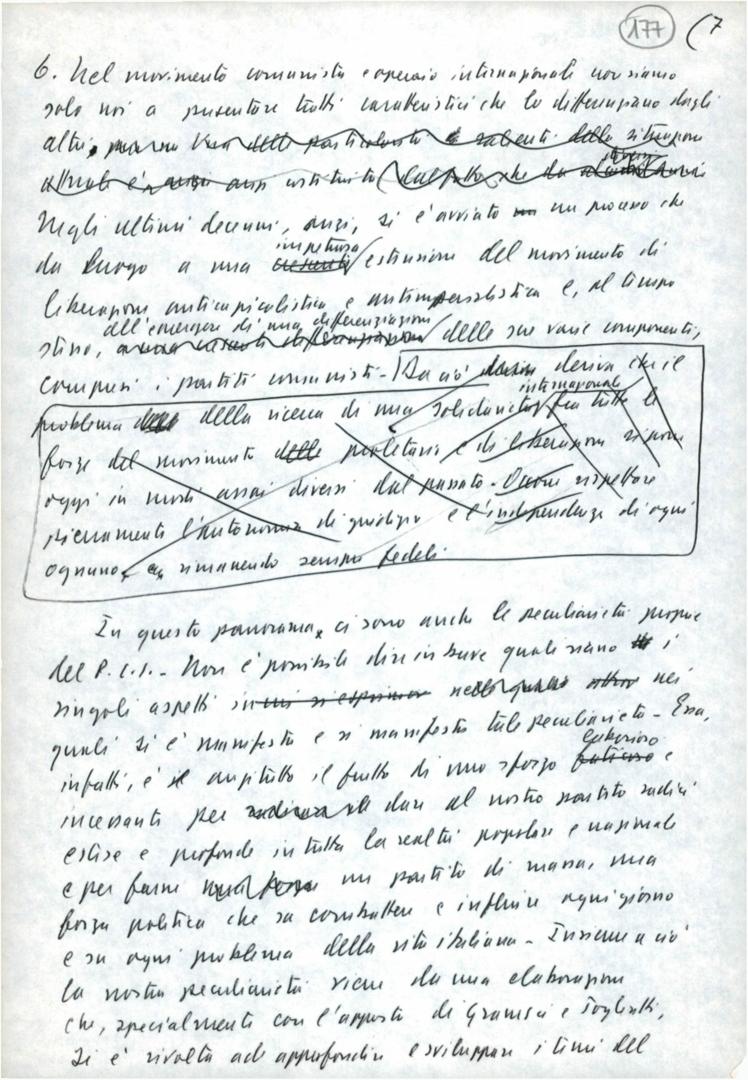 177 (7
6. Nel movimento comunista e operaio internazionale non siamo
solo noi a presentare tratti caratteristici che lo differenziano dagli
altri, Una delle particolarità salienti della situazione
attuale è anzi costituita dal fatto che da diversi
Negli ultimi decenni, anzi, si è avviato un processo che
da luogo a una crescente impetuosa estensione del movimento di
liberazione anticapitalistica e antimperialistica e, al tempo
stesso, all'emergere di una differenziazione delle sue varie componenti,
compresi i partiti comunisti - Da ciò deriva che il
problema della ricerca di una solidarietà internazionale fra tutte le
forze del movimento delle proletario e di liberazione si pone
oggi in modi assai diversi dal passato - Occorre rispettare
pienamente l'autonomia di giudizio e l'indipendenza di ogni
ognuno, rimanendo sempre fedeli
In questo panorama, ci sono anche le peculiarità proprie
del P.C.I. - Non è possibile dire in breve quali siano i
singoli aspetti in cui si esprimono nei
quali si è manifesta e si manifesta tale peculiarietà - Essa,
infatti, è il anzitutto il frutto di uno sforzo faticoso laborioso e
incessante per radicare dare al nostro partito radici
estese e profonde in tutta la realtà popolare e nazionale
e per farne un partito di massa, una
forza politica che sa combattere e influire ogni giorno
e su ogni problema della vita italiana - Insieme a ciò
la nostra peculiarietà viene da una elaborazione
che, specialmente con l'apporto di Gramsci e Togliatti,
si è rivolta ad approfondire e sviluppare i temi del